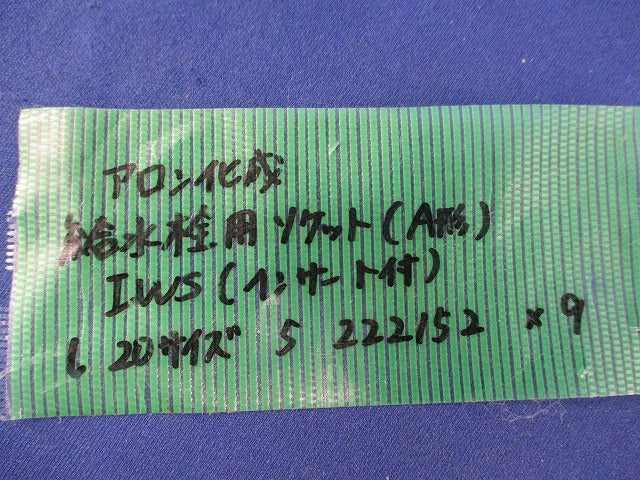 アロン化成
給水栓用ソケット(A形)
IWS(インサート付)
20サイズ 5 222152 ×9